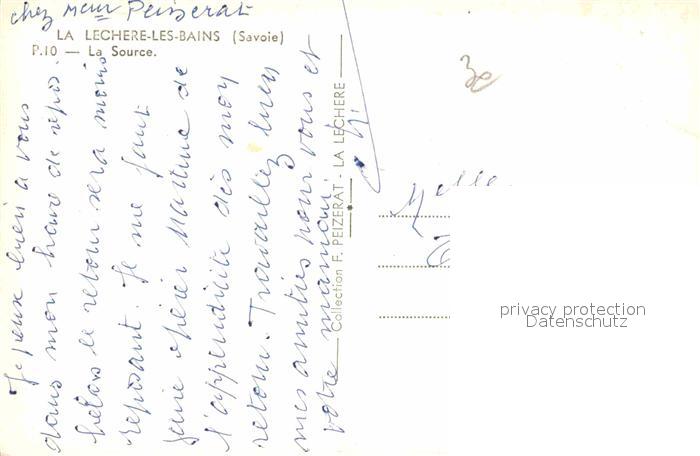 chez Meur Peizerat
LA LECHERE-LES-BAINS (Savoie)
P.10 — La Source.
Je pense bien à vous
dans mon havre de repos.
hélas le retour sera moins
reposant. Je me faut
faire opérer Martine de
l'appendicite dès mon
retour. Travaillez bien
mes amitiés pour vous et
votre maman.
Collection F. PEIZERAT - LA LECHERE
30
Melle
privacy protection
Datenschutz